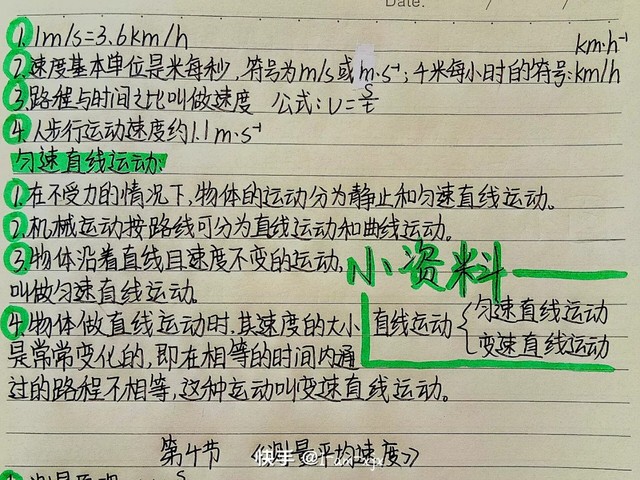 Date: / /
1. 1m/s=3.6km/h km·h⁻¹
2. 速度基本单位是米每秒，符号为m/s或m·s⁻¹；千米每小时的符号：km/h
3. 路程与时间之比叫做速度 公式：v=s/t
4. 人步行运动速度约1.1m·s⁻¹
匀速直线运动：
1. 在不受力的情况下，物体的运动分为静止和匀速直线运动。
2. 机械运动按路线可分为直线运动和曲线运动。
3. 物体沿着直线且速度不变的运动，
叫做匀速直线运动。
小资料
直线运动{匀速直线运动
变速直线运动
4. 物体做直线运动时，其速度的大小
是常常变化的，即在相等的时间内通
过的路程不相等，这种运动叫变速直线运动。
第4节 《测量平均速度》
快手